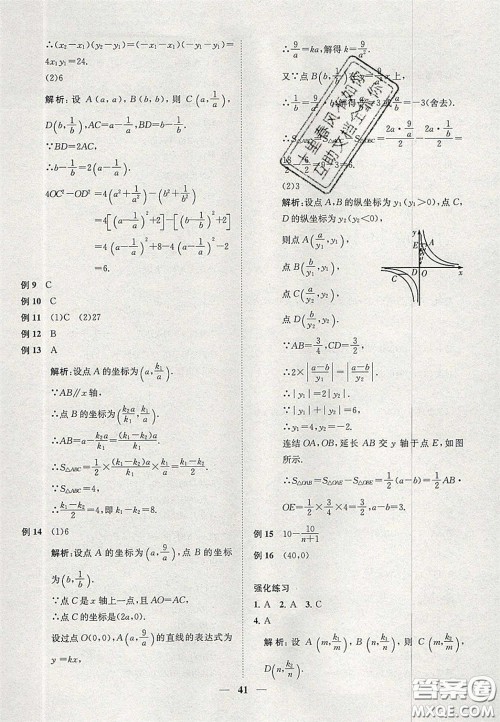 ∴(x₂-x₁)(y₂-y₁)=(-x₁-x₁)(-y₁-y₁)=
4x₁y₁=24.
(2)6
解析:设 A(a,a),B(b,b),则 C(a,1/a),
D(b,1/b),AC=a-1/a,BD=b-1/b.
∵BD=2AC,
∴b-1/b=2(a-1/a).
4OC²-OD²=4(a²+1/a²)-(b²+1/b²)
=4[(a-1/a)²+2]-[(b-1/b)²+2]
=4(a-1/a)²+8-4(a-1/a)²-2
=6.
例 9 C
例 10 C
例 11 (1)C (2)27
例 12 B
例 13 A
解析:设点 A 的坐标为(a,k₁/a).
∵AB∥x 轴,
∴点 B 的坐标为(k₂a/k₁,k₁/a).
∴AB=a-k₂a/k₁=(k₁-k₂)a/k₁.
∴S△ABC=1/2×(k₁-k₂)a/k₁×k₁/a=(k₁-k₂)/2.
∵S△ABC=4,
∴(k₁-k₂)/2=4.
∴k₁-k₂=8.
例 14 (1)6
解析:设点 A 的坐标为(a,9/a),点 B 的坐标
为(b,1/b).
∵点 C 是 x 轴上一点,且 AO=AC,
∴点 C 的坐标是(2a,0).
设过点 O(0,0),A(a,9/a)的直线的表达式为
y=kx,
∴9/a=ka,解得 k=9/a².
又∵点 B(b,1/b)
(2)3
解析:设点 A,B 的纵坐标为 y₁(y₁>0),点 C,
D 的纵坐标为 y₂(y₂<0),
则点 A(a/y₁,y₁),
点 B(b/y₁,y₁),
点 C(a/y₂,y₂),
点 D(b/y₂,y₂).
∵AB=3/4,CD=3/2,
∴2×|(a-b)/y₁|=|(a-b)/y₂|.
∴|y₁|=2|y₂|.
∵|y₁|+|y₂|=6,
∴y₁=4,y₂=-2.
连结 OA,OB,延长 AB 交 y 轴于点 E,如图
所示.
∴S△OAB=S△OAE-S△OBE=1/2(a-b)=1/2AB·
OE=1/2×3/4×4=3/2.
∴a-b=2S△OAB=3.
例 15 10-10/(n+1)
例 16 (40,0)
强化练习
1. A 2. A 3. C
4. A
解析:设 A(m,k₁/m),B(n,k₁/n),则 C(m,k₂/m),
D(n,k₂/n).
41
十里春风不如你
互助文档全靠你
答案圈
MXQE.COM